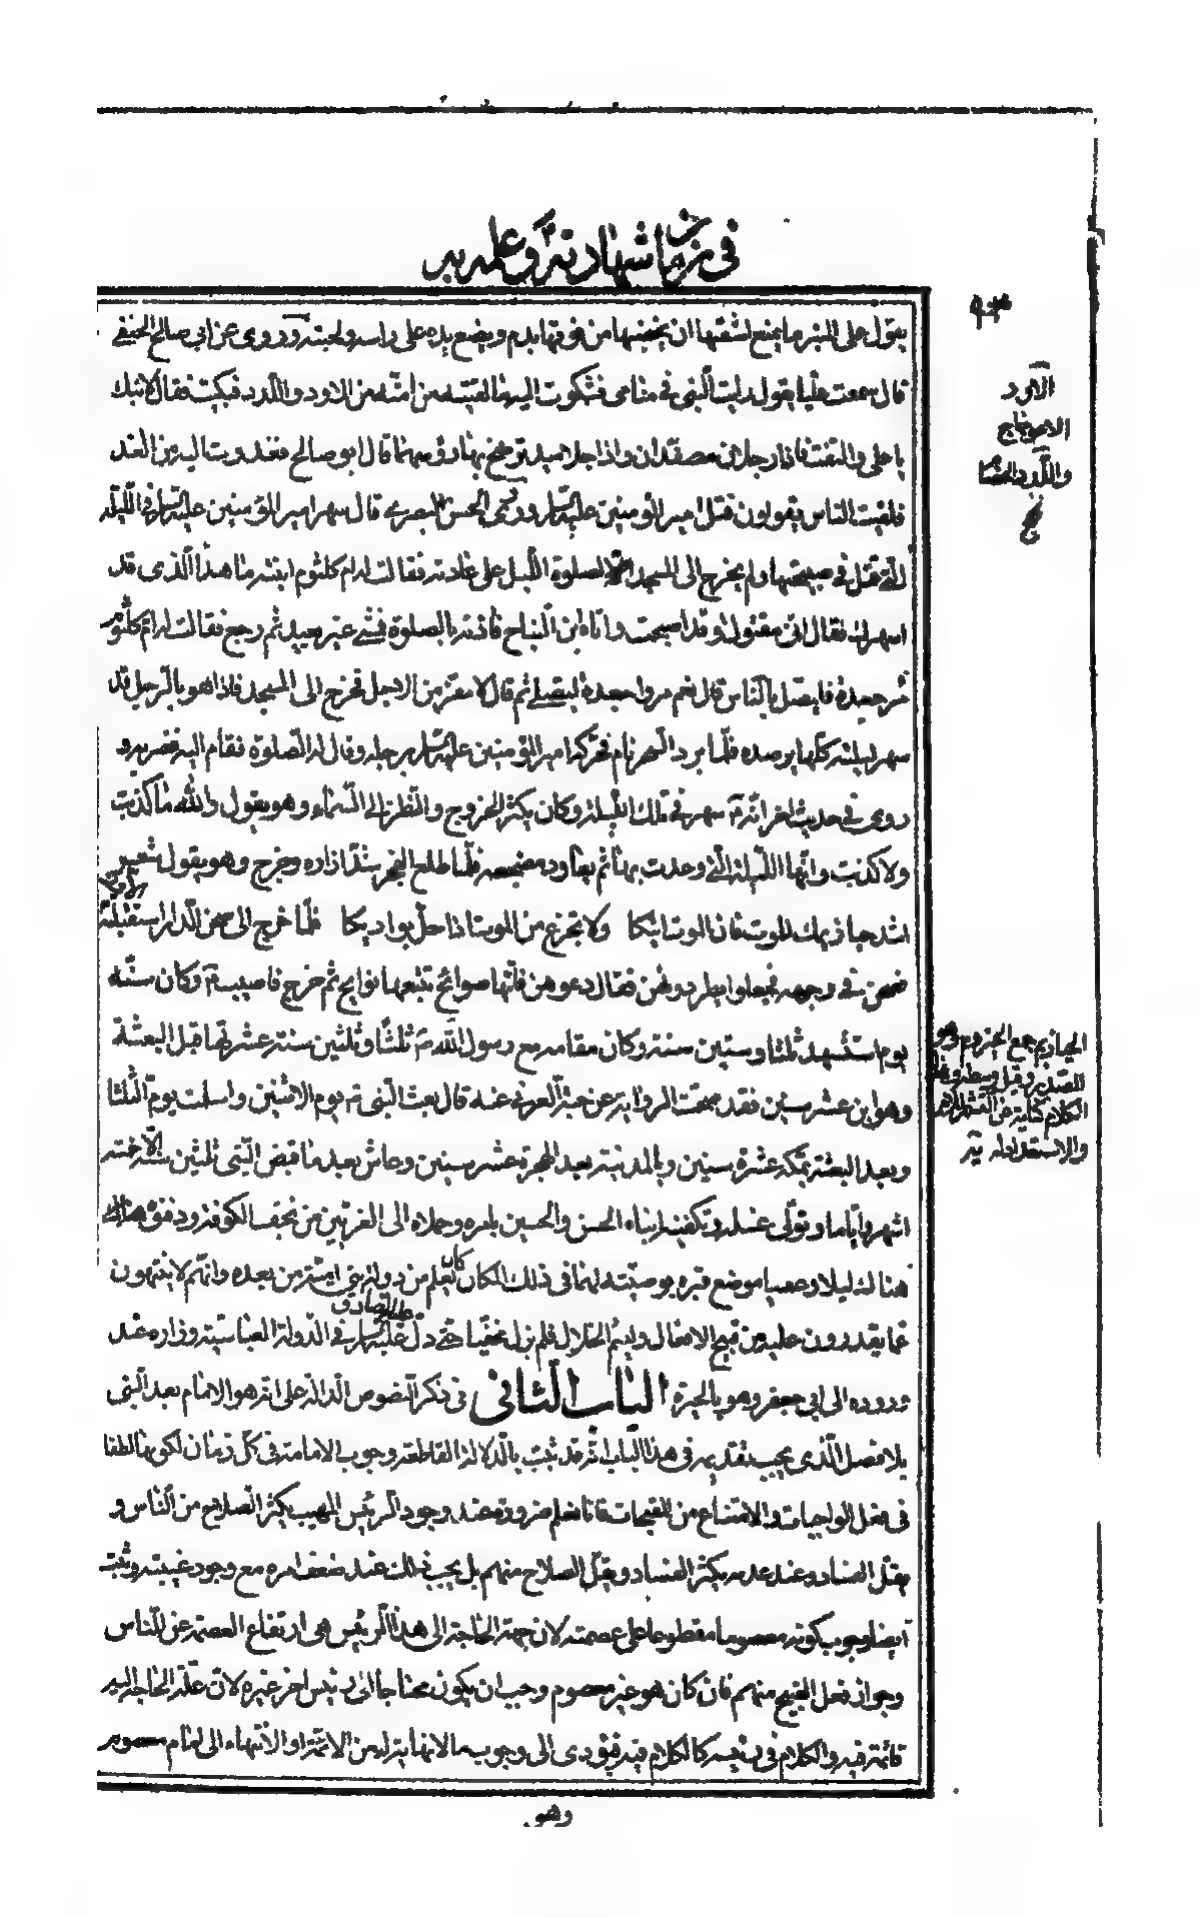 في زمان شهادته ؑ وعلمه به
يقول على المنبر ما يمنع اشقها ان يخضبها من فوقها بدم ويضع يده على راسه ولحيته وروى عن ابي صالح الحنفي
قال سمعت عليّا يقول رايت النّبي في منامي فشكوت اليه ما لقيته من امّته من الاود واللّدد فبكيت فقال لا تبك
يا علي والتفت فاذا رجلان مصفّدان واذا جلاميد ترضخ بهما رؤسهما قال ابو صالح فغدوت اليه من الغد
فلقيت الناس يقولون قتل امير المؤمنين عليه السّلم وروى الحسن البصري قال سهر امير المؤمنين عليه السّلم في اللّيلة
الّتي قتل في صبيحتها ولم يخرج الى المسجد لصلوة اللّيل على عادته فقالت له ام كلثوم ابنته ما هذا الّذي قد
اسهرك فقال انّي مقتول لو قد اصبحت واتاه ابن النباح فآذنه بالصلوة فمشى غير بعيد ثم رجع فقالت له امّ كلثوم
مر جعدة فليصّل بالنّاس قال نعم مروا جعدة ليصلّي ثم قال لا مفرّ من الاجل فخرج الى المسجد فاذا هو بالرّجل قد
سهر ليلته كلّها يرصده فلمّا برد السّحر نام فحرّكه امير المؤمنين عليه السّلم برجله وقال له الصّلوة فقام اليه فضربه و
روى في حديث اخر انّه ؑ سهر في تلك اللّيلة وكان يكثر الخروج والنّظر الى السّماء وهو يقول والله ما كذبت
ولا كذبت وانّها اللّيلة الّتي وعدت بها ثم يعاود مضجعه فلمّا طلع الفجر شدّ ازاره وخرج وهو يقول شعر
اشدد حيازيمك للموت فان الموت لاتيكا ولا تجزع من الموت اذا حلّ بواديكا فلمّا خرج الى صحن الدّار استقبلته الاوز
فصحن في وجهه فجعلوا يطردونهن فقال دعوهن فانّها صوائح تتبعها نوايح ثم خرج فاصيب ؑ وكان سنّه
يوم استشهد ثلثا وستين سنة وكان مقامه مع رسول الله ص ثلثا وثلثين سنة عشر منها قبل البعثة
وهو ابن عشر سنين فقد صحّت الرواية عن حبّة العرني عنه قال بعث النّبي ص يوم الاثنين واسلمت يوم الثّلثا
وبعد البعثة بمكّة عشرة سنين وبالمدينة بعد الهجرة عشر سنين وعاش بعد ما قبض النّبي ثلثين سنة الّا خمسة
اشهر وايّاما وتولّى غسله وتكفينه ابناه الحسن والحسين بامره وحملاه الى الغريّين من نجف الكوفة ودفناه
هناك ليلا وعميا موضع قبره بوصيّته لهما في ذلك لما كان يعلم من دولة بني اميّة من بعده وانّهم لا ينتهون
عما يقدرون عليه من قبح الافعال ولئيم الخلال فلم يزل مخفيّا حتى دلّ عليه الصادق عليه السّلم في الدّولة العباسيّة وزاره عند
وروده الى ابي جعفر وهو بالحيرة الباب الثّاني في ذكر النّصوص الدّالّة على انّه هو الامام بعد النّبي
بلا فصل الّذي يجب تقديمه في هذا الباب انّه قد ثبت بالدّلالة القاطعة وجوب الامامة في كلّ زمان لكونها لطفا
في فعل الواجبات والامتناع من القبيحات فانا نعلم ضرورة عند وجود الرّئيس المهيب يكثر الصّلاح من النّاس و
يقلّ الفساد وعند عدمه يكثر الفساد ويقلّ الصلاح منهم بل يجب ذلك عند ضعف امره مع وجود عينه وثبت
ايضا وجوب كونه معصوما مقطوعا على عصمته لان جهة الحاجة الى هذا الرّئيس هي ارتفاع العصمة عن النّاس
وجواز فعل القبيح منهم فان كان هو غير معصوم وجب ان يكون محتاجا الى رئيس اخر غيره لانّ علّة الحاجة اليه
قائمة فيه والكلام في رئيسه كالكلام فيه فيؤدى الى وجوب ما لا نهاية له من الائمّة او الانتهاء الى امام معصوم
وهو
الاود
الاعوجاج
واللّدد الخصام
الحيازيم جمع الحيزوم وهو
الصّدر وقيل وسطه وهذا
الكلام كناية عن التشمر للامر
والاستعداد له